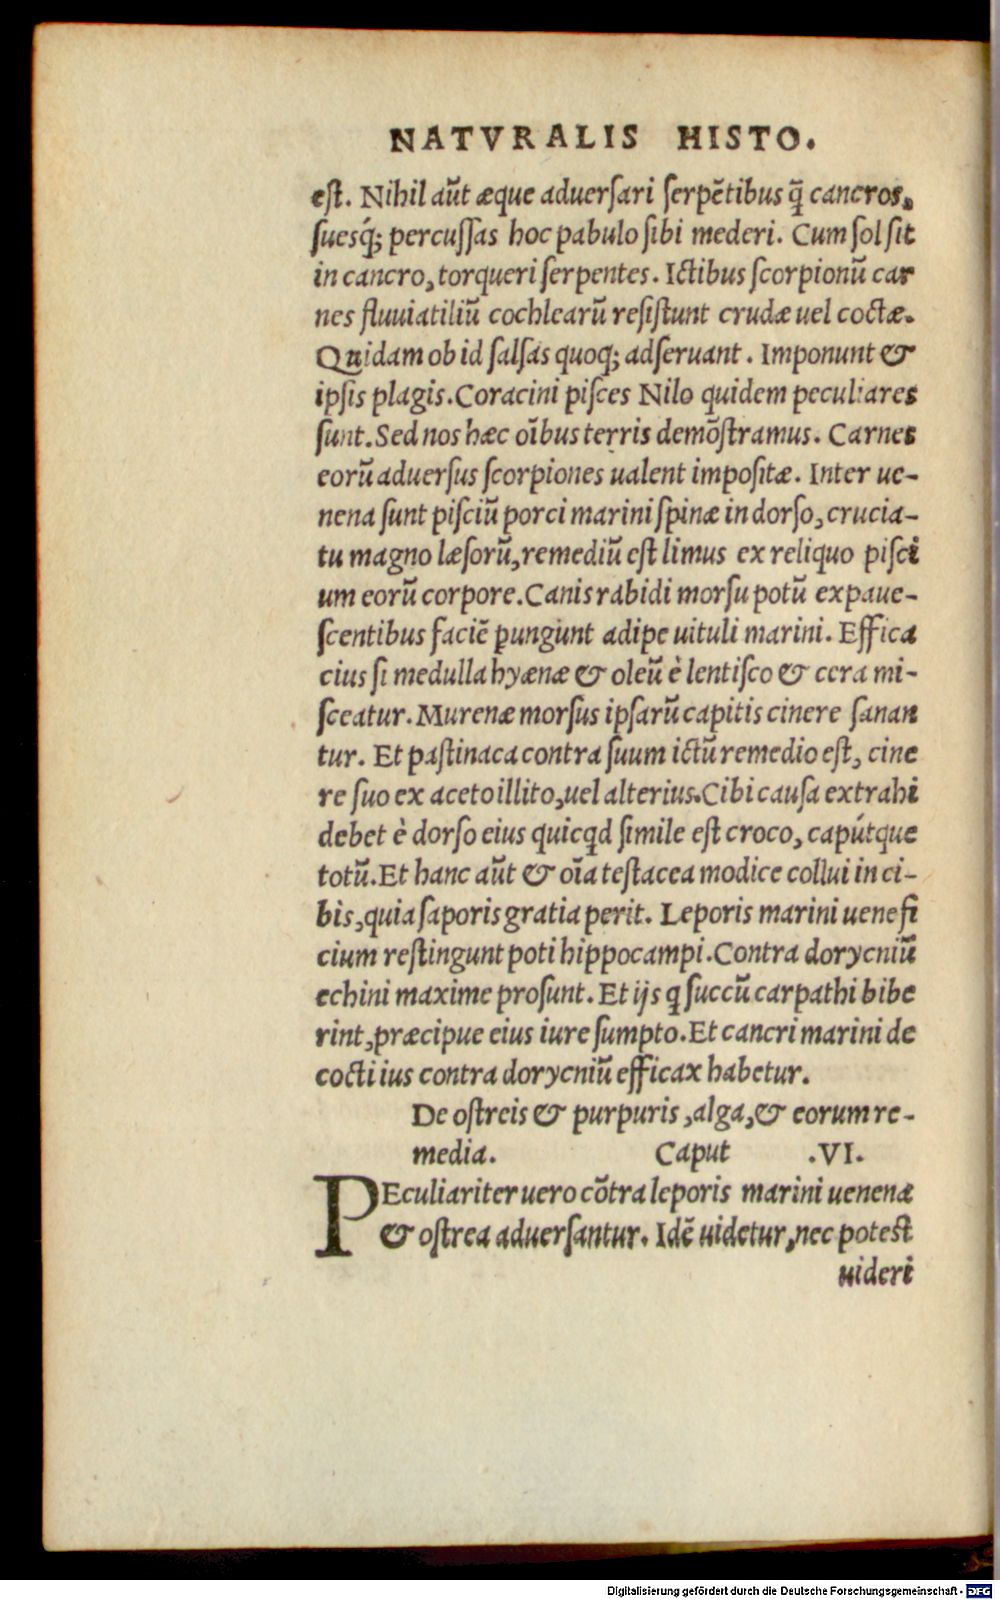 NATVRALIS HISTO.
est. Nihil aũt æque aduersari serpẽtibus q̃ cancros,
suesq́; percussas hoc pabulo sibi mederi. Cum sol sit
in cancro, torqueri serpentes. Ictibus scorpionũ car
nes fluuiatiliũ cochlearũ resistunt crudæ uel coctæ.
Quidam ob id salsas quoq; adseruant. Imponunt &
ipsis plagis. Coracini pisces Nilo quidem peculiares
sunt. Sed nos hæc oĩbus terris demõstramus. Carnes
eorũ aduersus scorpiones ualent impositæ. Inter ue-
nena sunt pisciũ porci marini spinæ in dorso, crucia-
tu magno læsorũ, remediũ est limus ex reliquo pisci
um eorũ corpore. Canis rabidi morsu potũ expaue-
scentibus faciẽ ꝑungunt adipe uituli marini. Effica
cius si medulla hyænæ & oleũ è lentisco & cera mi-
sceatur. Murenæ morsus ipsarũ capitis cinere sanan
tur. Et pastinaca contra suum ictũ remedio est, cine
re suo ex aceto illito, uel alterius. Cibi causa extrahi
debet è dorso eius quicqd simile est croco, capútque
totũ. Et hanc aũt & oĩa testacea modice collui in ci-
bis, quia saporis gratia perit. Leporis marini uenefi
cium restingunt poti hippocampi. Contra dorycniũ
echini maxime prosunt. Et ijs q succũ carpathi bibe
rint, præcipue eius iure sumpto. Et cancri marini de
cocti ius contra dorycniũ efficax habetur.
De ostreis & purpuris, alga, & eorum re-
media. Caput .VI.
PEculiariter uero cõtra leporis marini uenena
& ostrea aduersantur. Idẽ uidetur, nec potest
uideri
Digitalisierung gefördert durch die Deutsche Forschungsgemeinschaft - DFG